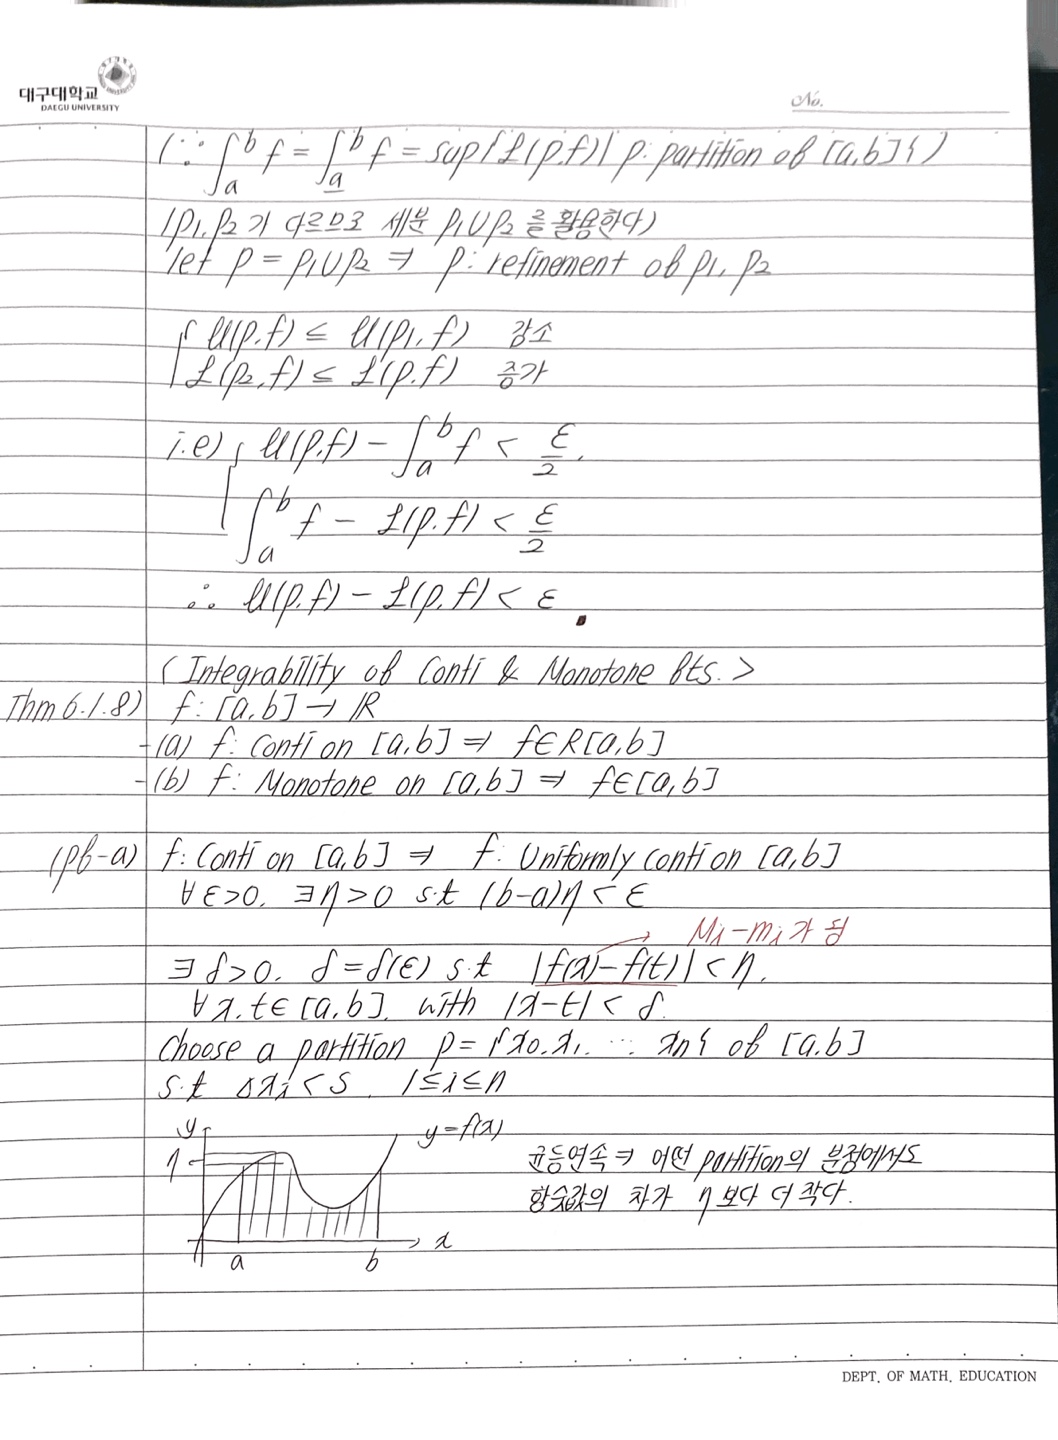 대구대학교
DAEGU UNIVERSITY
No.
(∵ ∫_a^b f = ∫_a^b f = sup{L(p.f)| p: partition of [a,b]})
(p1, p2가 다르므로 세분 p1∪p2를 활용한다)
let p = p1∪p2 ⇒ p: refinement of p1, p2
{ U(p.f) ≤ U(p1, f) 감소
L(p2, f) ≤ L(p.f) 증가
i.e) { U(p.f) - ∫_a^b f < ε/2.
∫_a^b f - L(p.f) < ε/2
∴ U(p.f) - L(p.f) < ε
< Integrability of Conti & Monotone fts. >
Thm 6.1.8) f: [a,b] → R
-(a) f: Conti on [a,b] ⇒ f∈R[a,b]
-(b) f: Monotone on [a,b] ⇒ f∈[a,b]
(pf-a) f: Conti on [a,b] ⇒ f: Uniformly conti on [a,b]
∀ε>0. ∃η>0 s.t (b-a)η < ε
→ Mi-mi가 됨
∃δ>0. δ=δ(ε) s.t |f(x)-f(t)| < η.
∀x.t∈[a,b]. with |x-t| < δ.
Choose a partition p = {x0.x1. ... xn} of [a.b]
s.t Δxi < s. 1≤i≤n
y
y=f(x)
η
a
b
x
균등연속 ⇒ 어떤 partition의 분점에서도
함숫값의 차가 η보다 더 작다.
DEPT. OF MATH. EDUCATION